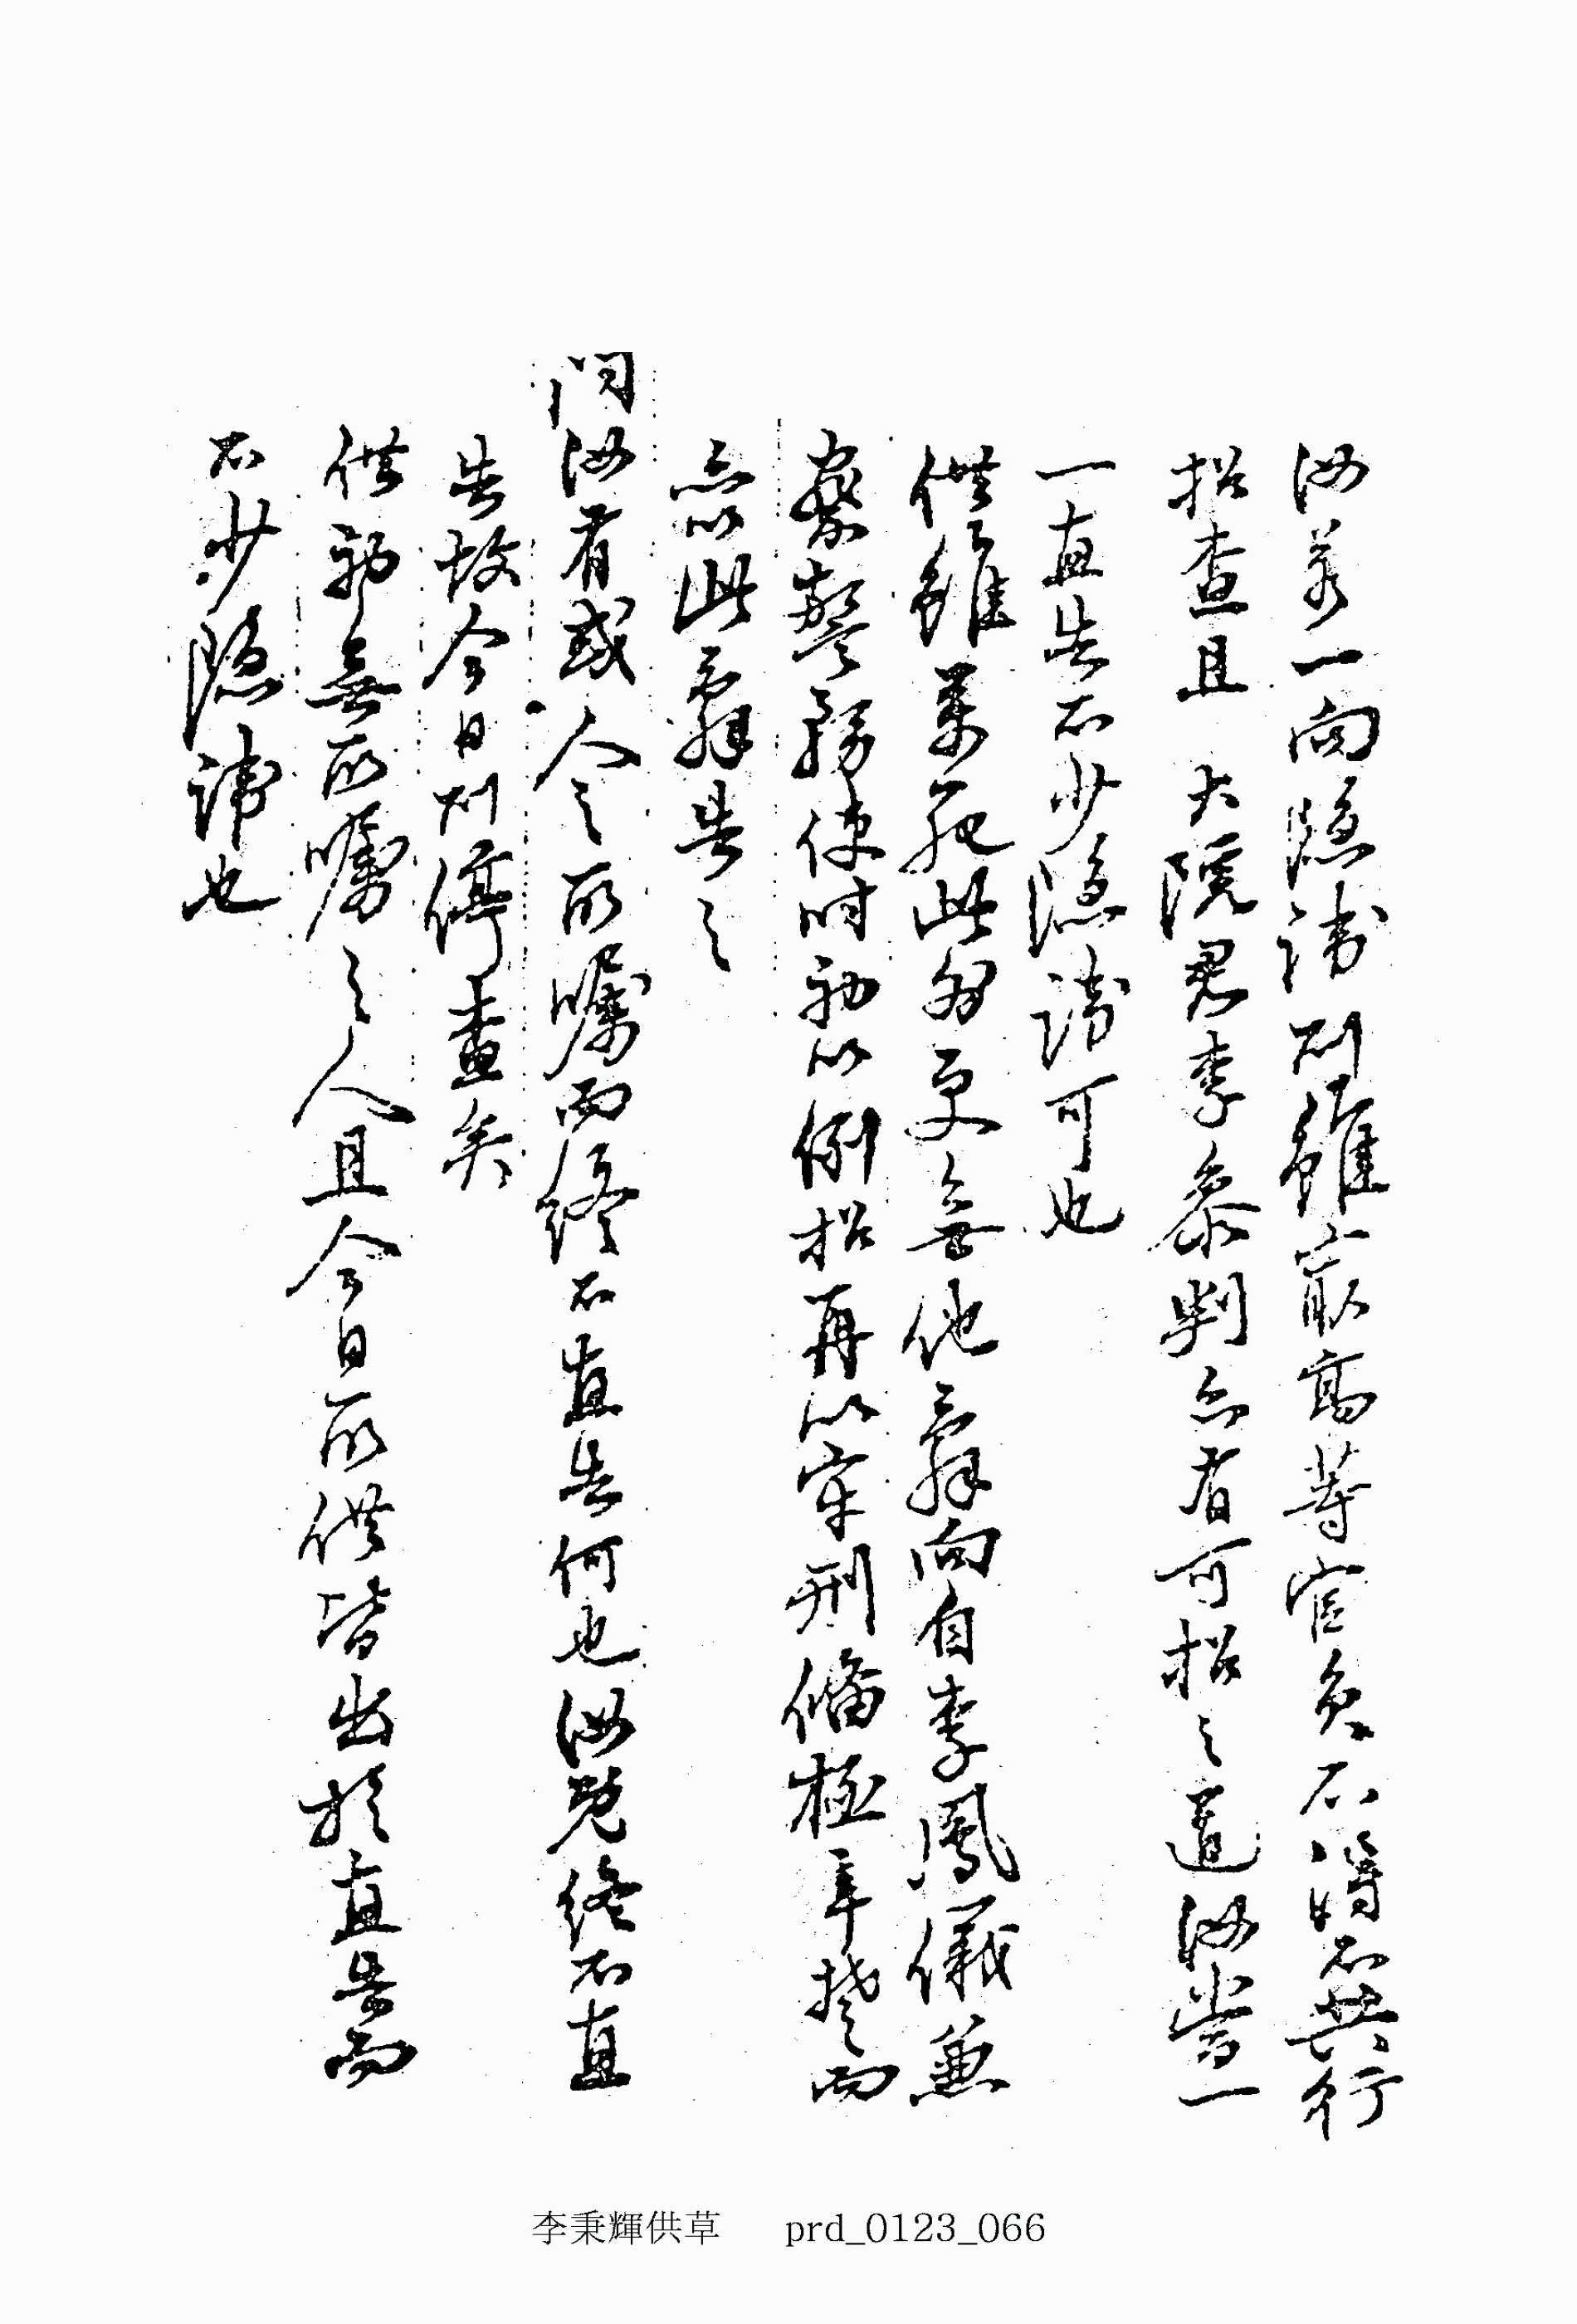 汝若一向隱諱則雖最高等官員不得不共行
招查且 大院君李參判亦有可招之道汝當一
一直告不少隱諱可也
供雖萬死此外更無他辭向自李鳳儀兼
察警務使時初以例招再以牢刑備極辛楚而
亦以此辭告之
問汝有或人之所囑而終不直告何也汝既終不直
告故今日則停查矣
供初無所囑之人且今日所供皆出於直告而
不少隱諱也
李秉輝供草 prd_0123_066